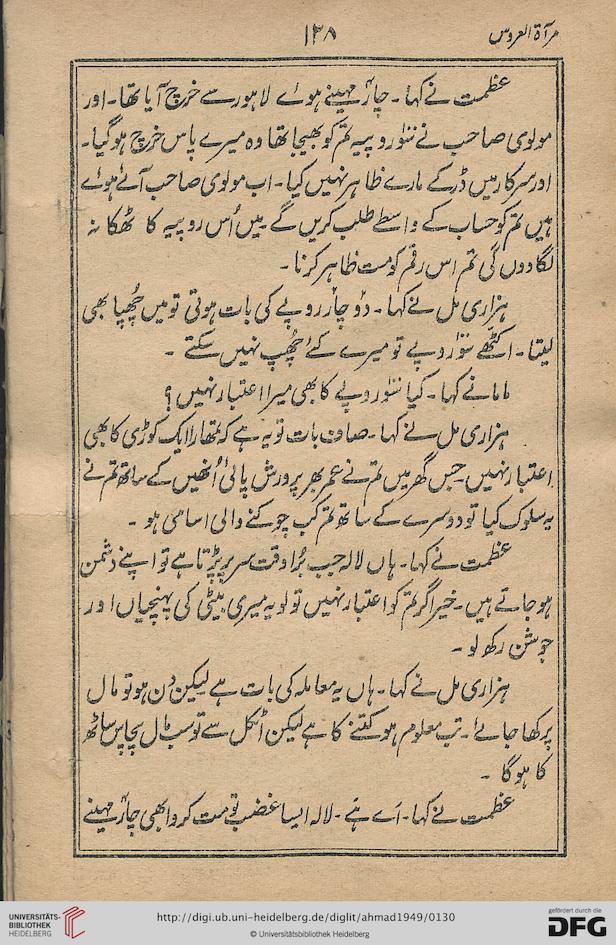 مرآۃ العروس
۱۲۸
عظمت نے کہا۔ چار مہینے ہوئے لاہور سے خرچ آیا تھا۔ اور
مولوی صاحب نے سو روپیہ تم کو بھیجا تھا وہ میرے پاس خرچ ہو گیا۔
اور سرکار میں ڈر کے مارے ظاہر نہیں کیا۔ اب مولوی صاحب آئے ہوئے
ہیں تم کو حساب کے واسطے طلب کریں گے میں اُس روپیہ کا ٹھکانہ
لگا دوں گی تم اس رقم کو مت ظاہر کرنا۔
ہزاری مل نے کہا۔ دو چار روپے کی بات ہوتی تو میں چھپا بھی
لیتا۔ اکٹھے سو روپے تو میرے کئے چھپ نہیں سکتے۔
ماما نے کہا۔ کیا سو روپے کا بھی میرا اعتبار نہیں؟
ہزاری مل نے کہا۔ صاف بات تو یہ ہے کہ تمھارا ایک کوڑی کا بھی
اعتبار نہیں۔ جس گھر میں تم نے عمر بھر پرورش پائی اُنھیں کے ساتھ تم نے
یہ سلوک کیا تو دوسرے کے ساتھ تم کب چوکنے والی اسامی ہو۔
عظمت نے کہا۔ ہاں لالہ جب بُرا وقت سر پر پڑتا ہے تو اپنے دشمن
ہو جاتے ہیں۔ خیر اگر تم کو اعتبار نہیں تو لو یہ میری بیٹی کی پہنچیاں اور
جوشن رکھ لو۔
ہزاری مل نے کہا۔ ہاں یہ معاملہ کی بات ہے لیکن دن ہو تو مال
پرکھا جائے۔ تب معلوم ہو کتنے کا ہے لیکن اٹکل سے تو سب مال پچاس ساٹھ
کا ہوگا۔
عظمت نے کہا۔ اَے ہَے۔ لالہ ایسا غضب تو مت کرو ابھی چار مہینے
UNIVERSITÄTS-
BIBLIOTHEK
HEIDELBERG
http://digi.ub.uni-heidelberg.de/diglit/ahmad1949/0130
© Universitätsbibliothek Heidelberg
gefördert durch die
DFG